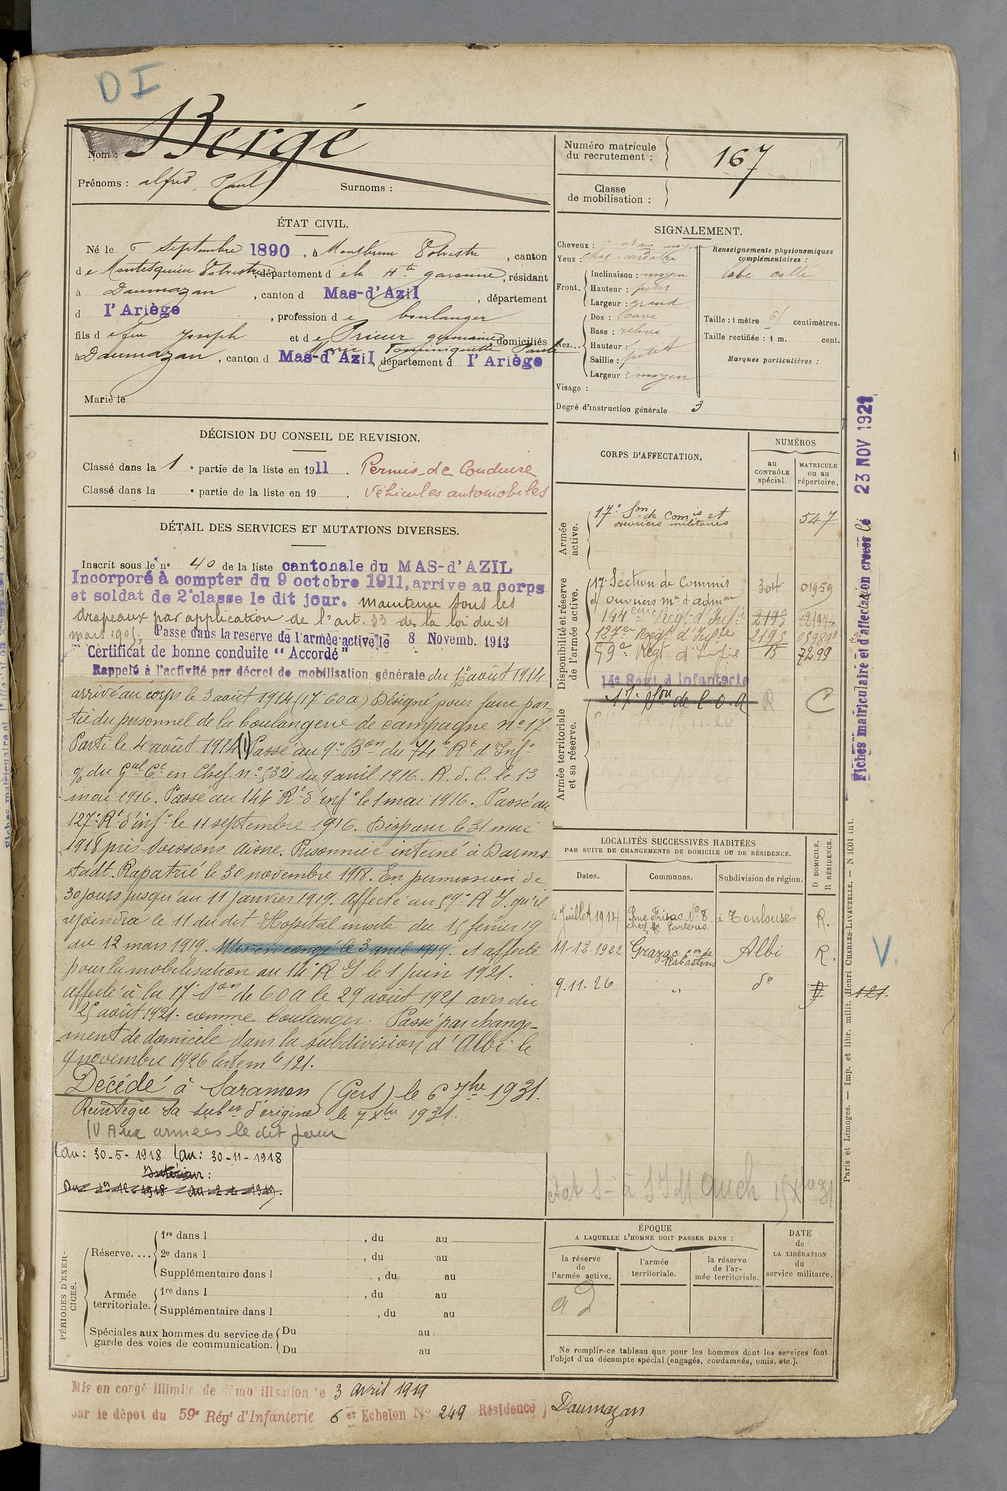 D I
Nom : Bergé
Prénoms : alfred, Paul Surnoms :
Numéro matricule du recrutement : 167
Classe de mobilisation :
ÉTAT CIVIL.
Né le 6 septembre 1890, à Montbrun Volvestre, canton
de Montesquieu Volvestre, département de la Hte garonne, résidant
à Daumazan, canton d Mas-d'Azil, département
d l'Ariège, profession de boulanger
fils de feu Joseph et de Prieur germaine
Marie Dominiquette Paule domiciliés
à Daumazan, canton d Mas-d'Azil, département d l'Ariège
Marié le
SIGNALEMENT.
Cheveux :
Yeux
Front. Inclinaison : moyen
Hauteur :
Largeur : grand
Nez... Dos : cave
Base : relevé
Hauteur :
Saillie : petit
Largeur : moyen
Visage :
Degré d'instruction générale 3
Renseignements physionomiques complémentaires :
Lobe collé
Taille : 1 mètre 61 centimètres.
Taille rectifiée : 1 m. cent.
Marques particulières :
DÉCISION DU CONSEIL DE REVISION.
Classé dans la 1e partie de la liste en 1911. Permis de Conduire
Classé dans la e partie de la liste en 19 . Véhicules automobiles
DÉTAIL DES SERVICES ET MUTATIONS DIVERSES.
Inscrit sous le n° 40 de la liste cantonale du MAS-d'AZIL
Incorporé à compter du 9 octobre 1911, arrive au corps
et soldat de 2e classe le dit jour. maintenu sous les
drapeaux par application de l'art. 33 de la loi du 21
mars 1905. Passe dans la reserve de l'armée active le 8 Novemb. 1913
Certificat de bonne conduite "Accordé"
Rappelé à l'activité par décret de mobilisation générale du 1er août 1914
arrivé au corps le 3 août 1914 (17 COA) Désigné pour faire par-
tie du personnel de la boulangerie de campagne n° 17
Parti le 4 août 1914 (1) Passé au 9e Bon du 74e Rt d'Infie
o/ du Gal Ct en Chef n° 532 du 9 avril 1916. R.d.l. le 13
mai 1916. Passé au 144 Rt d'infie le 1 mai 1916. Passé au
127e Rt d'infie le 11 septembre 1916. Disparu le 31 mai
1918 près Soissons Aisne. Prisonnier interné à Darms-
tadt. Rapatrié le 30 novembre 1918. En permission de
30 jours jusqu'au 11 janvier 1919. affecté au 59e R I qu'il
rejoindra le 11 du dit Hospital mixte du 15 février 19
au 12 mars 1919. Mis en congé le 3 avril 1919. et affecté
pour la mobilisation au 14e R I le 1 juin 1921.
affecté à la 17e Son de COA le 29 août 1921 avis du
25 août 1921. comme boulanger. Passé par change-
ment de domicile dans la subdivision d'Albi le
9 novembre 1926 121.
Décédé à Saramon (Gers) le 6 7bre 1931.
Réintégré sa subon d'origine le 7 Xbre 1931.
(1) Aux armées le dit jour
au : 30-5-1918 au : 30-11-1918
Intérieur :
CORPS D'AFFECTATION.
NUMÉROS
AU CONTRÔLE spécial. MATRICULE OU AU répertoire.
Armée active.
17e Son de Comis et ouvriers militaires 547
Disponibilité et réserve de l'armée active.
17e Section de Commis
et ouvriers mres d'admon 304 01959
144ème Régt d'Infie 2195
127e Régt d'Infie 2195
59e Régt d'Infie 15 7299
14e Régt d'Infanterie
17e Son de C.O.A R C
Armée territoriale et sa réserve.
Fiches matriculaire et d'affectation creees le 23 NOV 1921
LOCALITÉS SUCCESSIVES HABITÉES
PAR SUITE DE CHANGEMENTS DE DOMICILE OU DE RÉSIDENCE.
Dates. Communes. Subdivision de région. D DOMICILE. R RÉSIDENCE.
Juillet 1914 Rue Frisac N° 8 à Toulouse R.
11-12-1922 Grazac con de Rabastens Albi R.
9.11.26 " d° D 121.
V.
à SIM auch
PÉRIODES D'EXERCICES.
Réserve.... 1re dans l , du au
2e dans l , du au
Supplémentaire dans l , du au
Armée territoriale. 1re dans l , du au
Supplémentaire dans l , du au
Spéciales aux hommes du service de garde des voies de communication. Du au
Du au
ÉPOQUE
A LAQUELLE L'HOMME DOIT PASSER DANS :
la réserve de l'armée active. l'armée territoriale. la réserve de l'armée territoriale.
DATE de LA LIBÉRATION du service militaire.
Ne remplir ce tableau que pour les hommes dont les services font
l'objet d'un décompte spécial (engagés, condamnés, omis, etc.).
Paris et Limoges. — Imp. et libr. milit. Henri CHARLES-LAVAUZELLE.
Mis en congé illimité de démobilisation le 3 avril 1919
par le dépot du 59e Régt d'Infanterie 6er Echelon N° 249 Résidence Daumazan